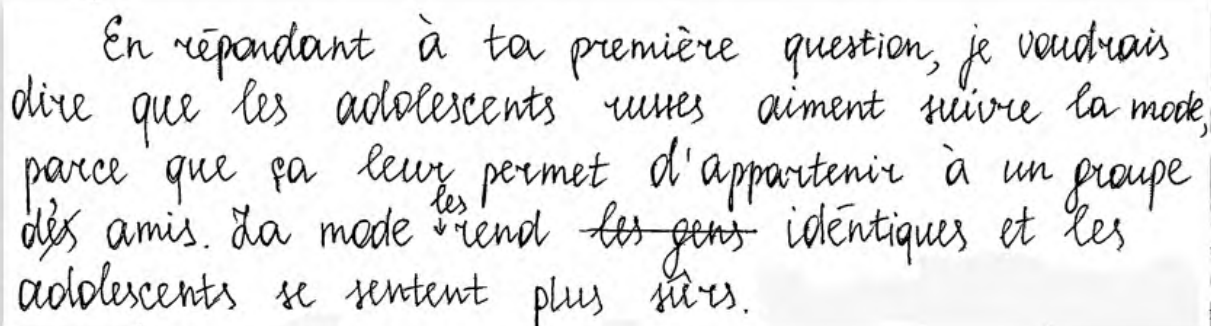 En répondant à ta première question, je voudrais
dire que les adolescents russes aiment suivre la mode,
parce que ça leur permet d'appartenir à un groupe
d'amis. La mode les rend les gens identiques et les
adolescents se sentent plus sûrs.